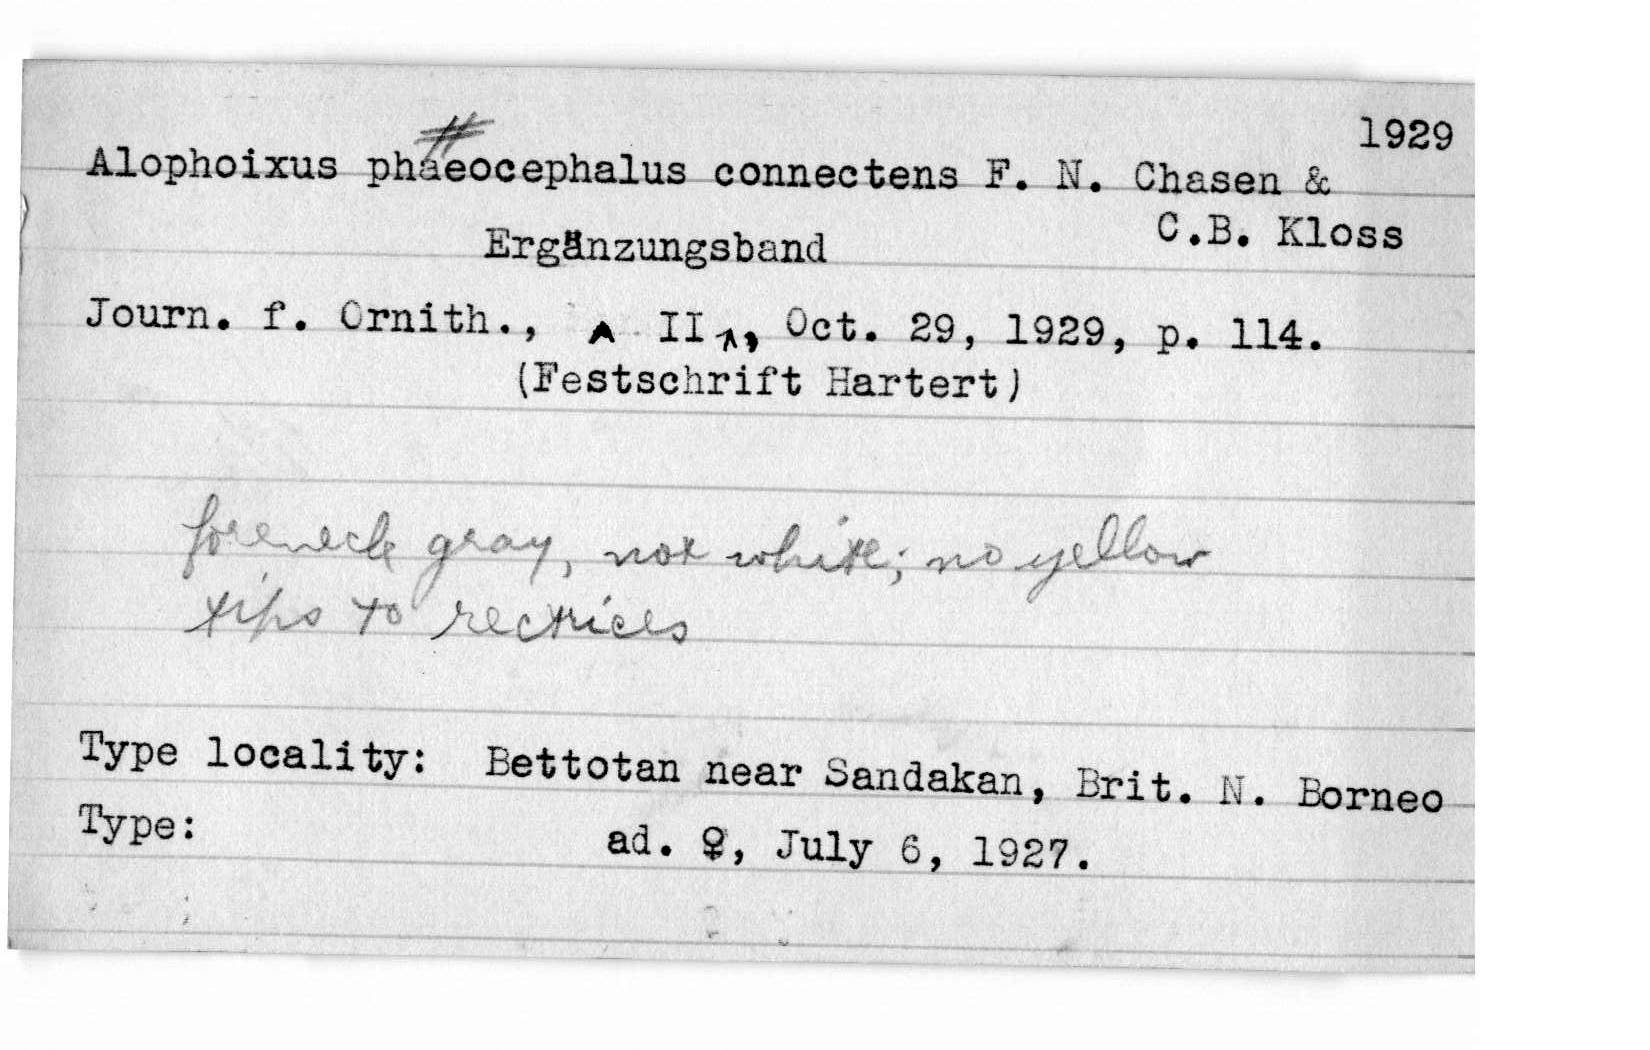 1929
#
Alophoixus phaeocephalus connectens F. N. Chasen &
C.B. Kloss
Ergänzungsband
Journ. f. Ornith., ^ II ^, Oct. 29, 1929, p. 114.
(Festschrift Hartert)
foreneck gray, not white; no yellow
tips to rectrices
Type locality: Bettotan near Sandakan, Brit. N. Borneo
Type: ad. ♀, July 6, 1927.